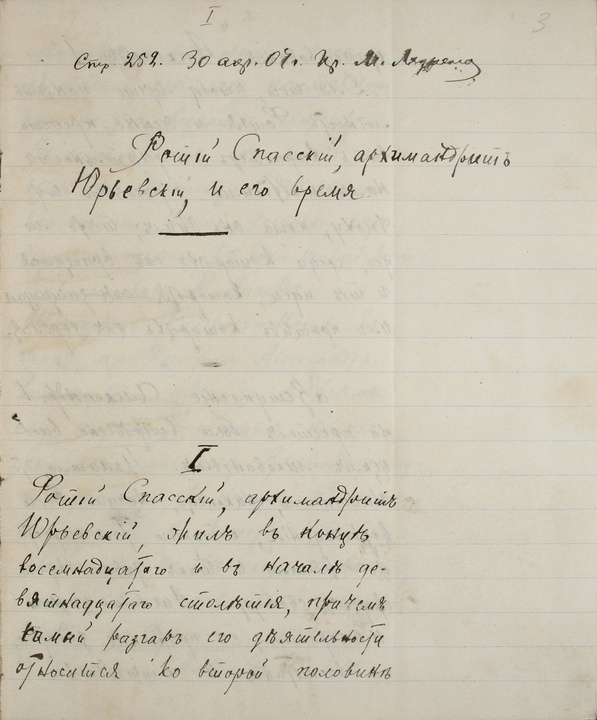 I
3
Стр. 252. 30 апр. 04 г. Пр. М.
Фотій Спасскій, архимандритъ
Юрьевскій, и его время
I
Фотій Спасскій, архимандритъ
Юрьевскій, жилъ въ концѣ
восемнадцатаго и въ началѣ де-
вятнадцатаго столѣтія, причемъ
самый разгаръ его дѣятельности
относится ко второй половинѣ